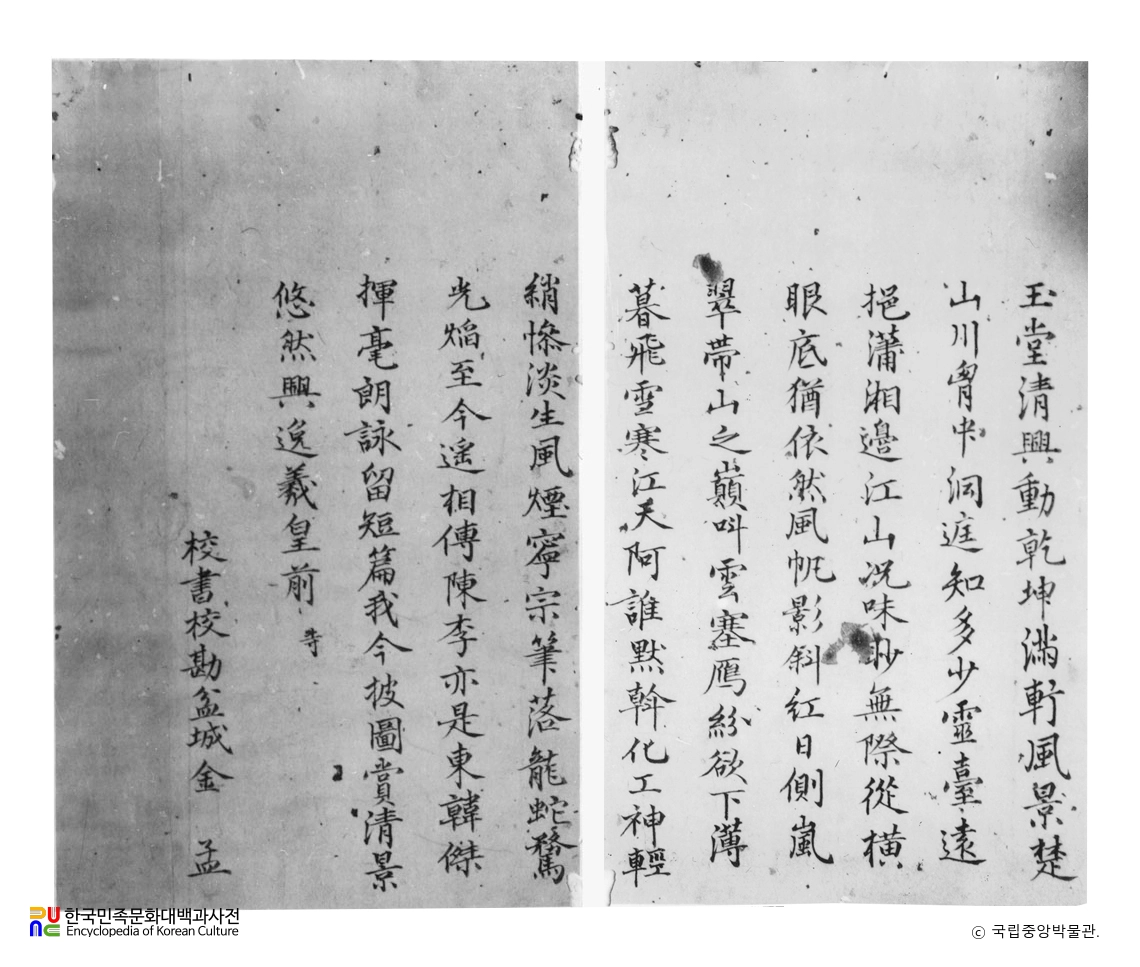 玉堂清興動乾坤滿軒風景楚
山川胷中洞庭知多少靈臺遠
挹瀟湘邊江山況味眇無際從橫
眼底猶依然風帆影斜紅日側嵐
翠帶山之巔叫雲塞鴈紛欲下薄
暮飛雪寒江天阿誰默斡化工神輕
綃慘淡生風煙寧宗筆落龍蛇騖
光焰至今遙相傳陳李亦是東韓傑
揮毫朗詠留短篇我今披圖賞清景
悠然興逸羲皇前
校書校勘盆城金 孟
한국민족문화대백과사전
Encyclopedia of Korean Culture
© 국립중앙박물관.